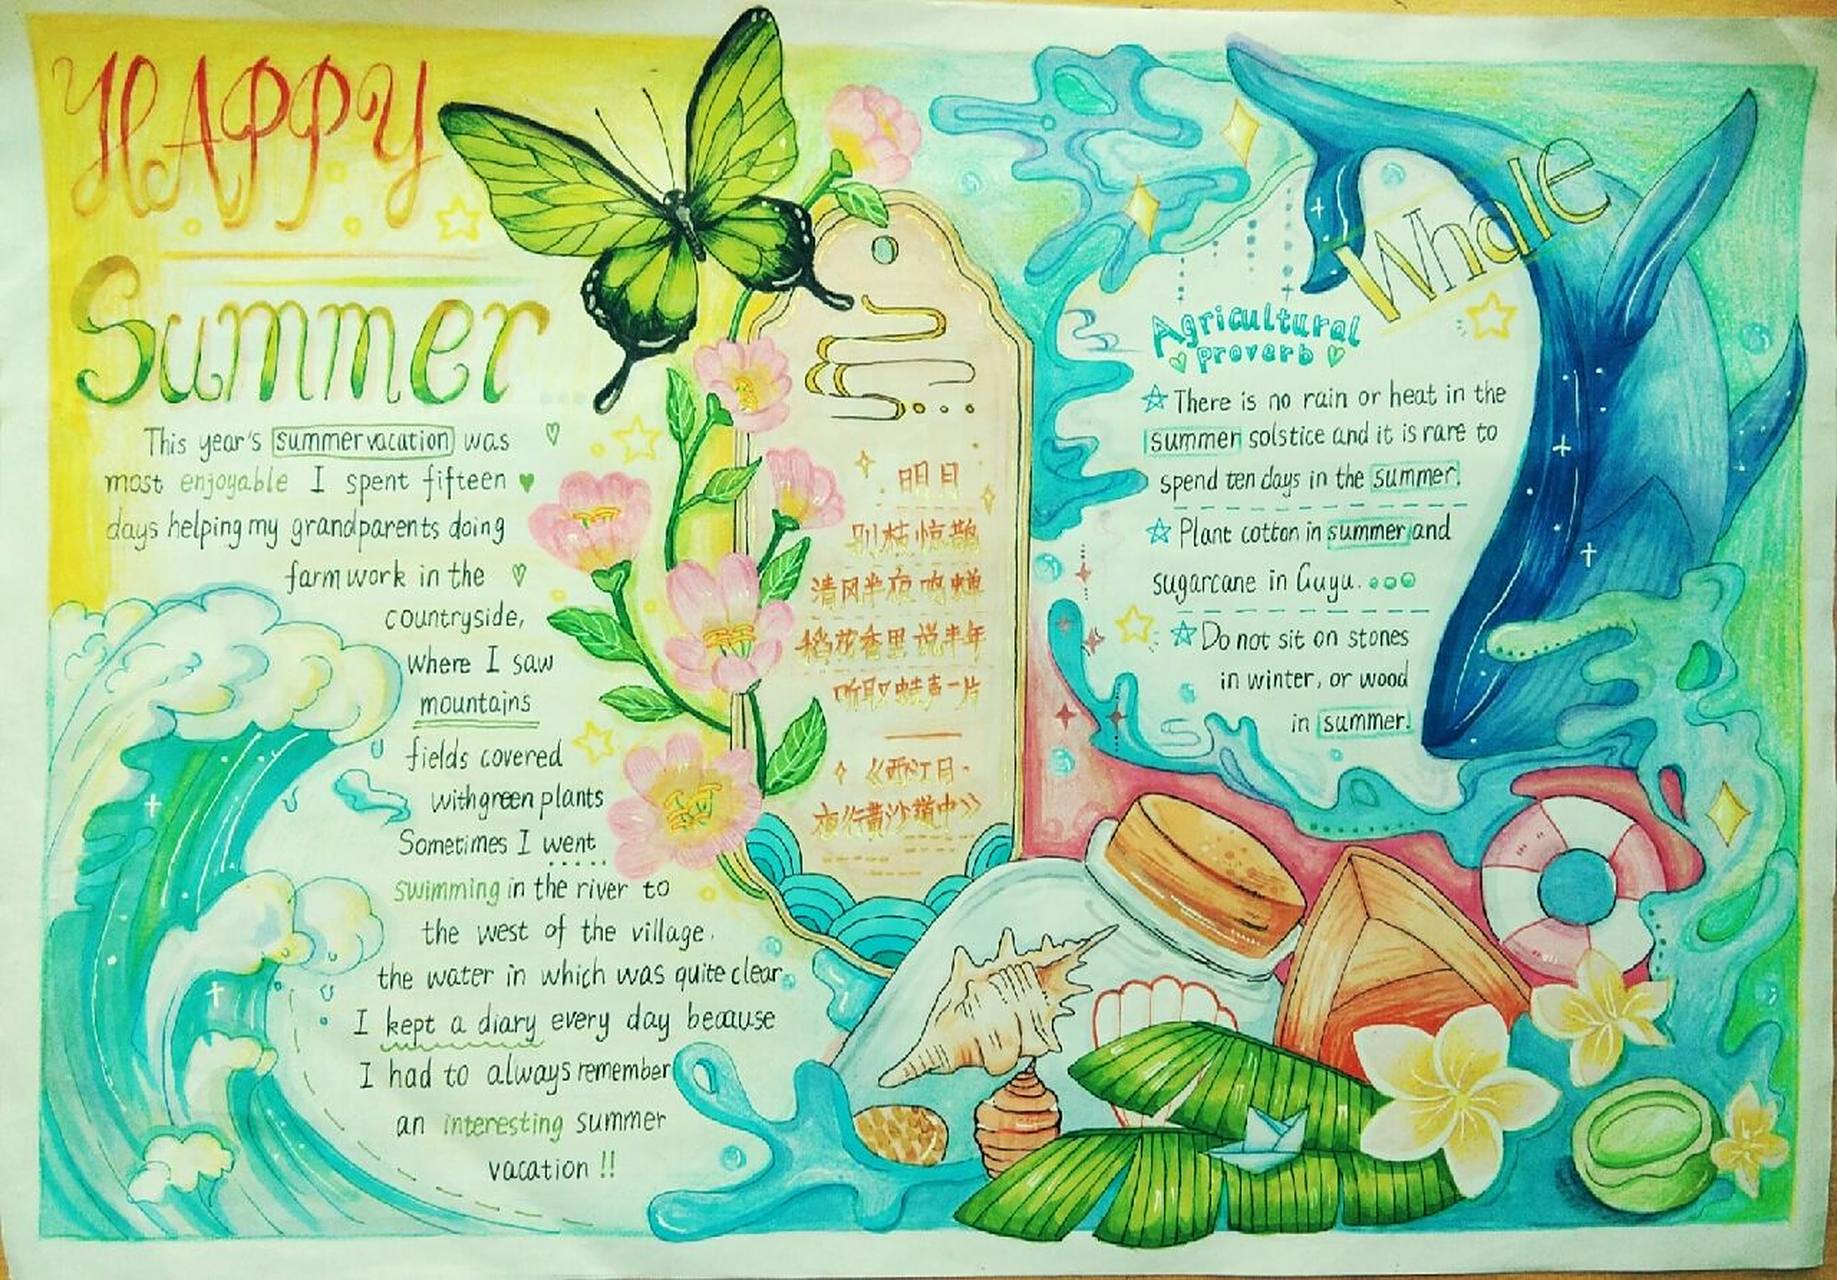 HAPPY
Summer
This year's summer vacation was
most enjoyable I spent fifteen
days helping my grandparents doing
farm work in the
countryside,
where I saw
mountains
fields covered
with green plants
Sometimes I went
swimming in the river to
the west of the village.
the water in which was quite clear.
I kept a diary every day because
I had to always remember
an interesting summer
vacation !!
明月
别枝惊鹊
清风半夜鸣蝉
稻花香里说丰年
听取蛙声一片
《西江月·
夜行黄沙道中》
Whale
Agricultural
proverb
There is no rain or heat in the
summer solstice and it is rare to
spend ten days in the summer.
Plant cotton in summer and
sugarcane in Guyu.
Do not sit on stones
in winter, or wood
in summer.